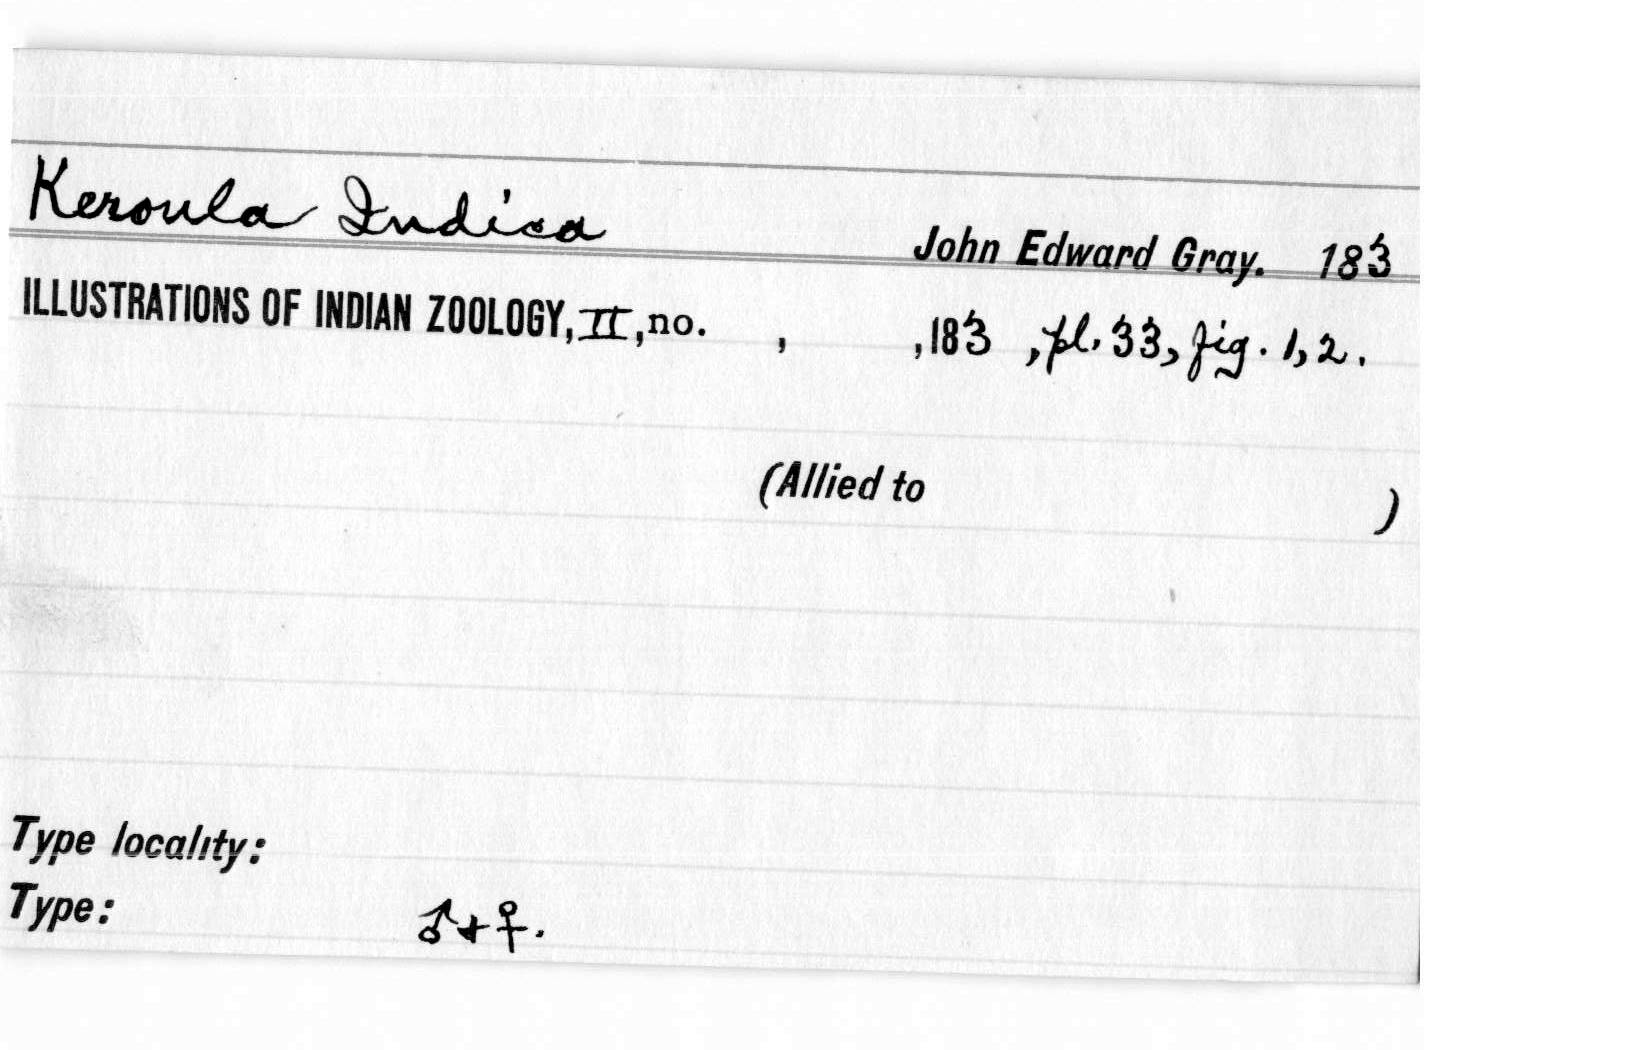 Keroula Indica
John Edward Gray. 183
ILLUSTRATIONS OF INDIAN ZOOLOGY, II, no. , , 183 , pl. 33, fig. 1, 2.
(Allied to )
Type locality:
Type: ♂ + ♀.